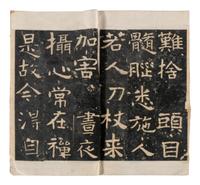 難捨頭目
髓腦悉施人
若人刀杖来
加害晝夜
攝心常在禪
是故今得自